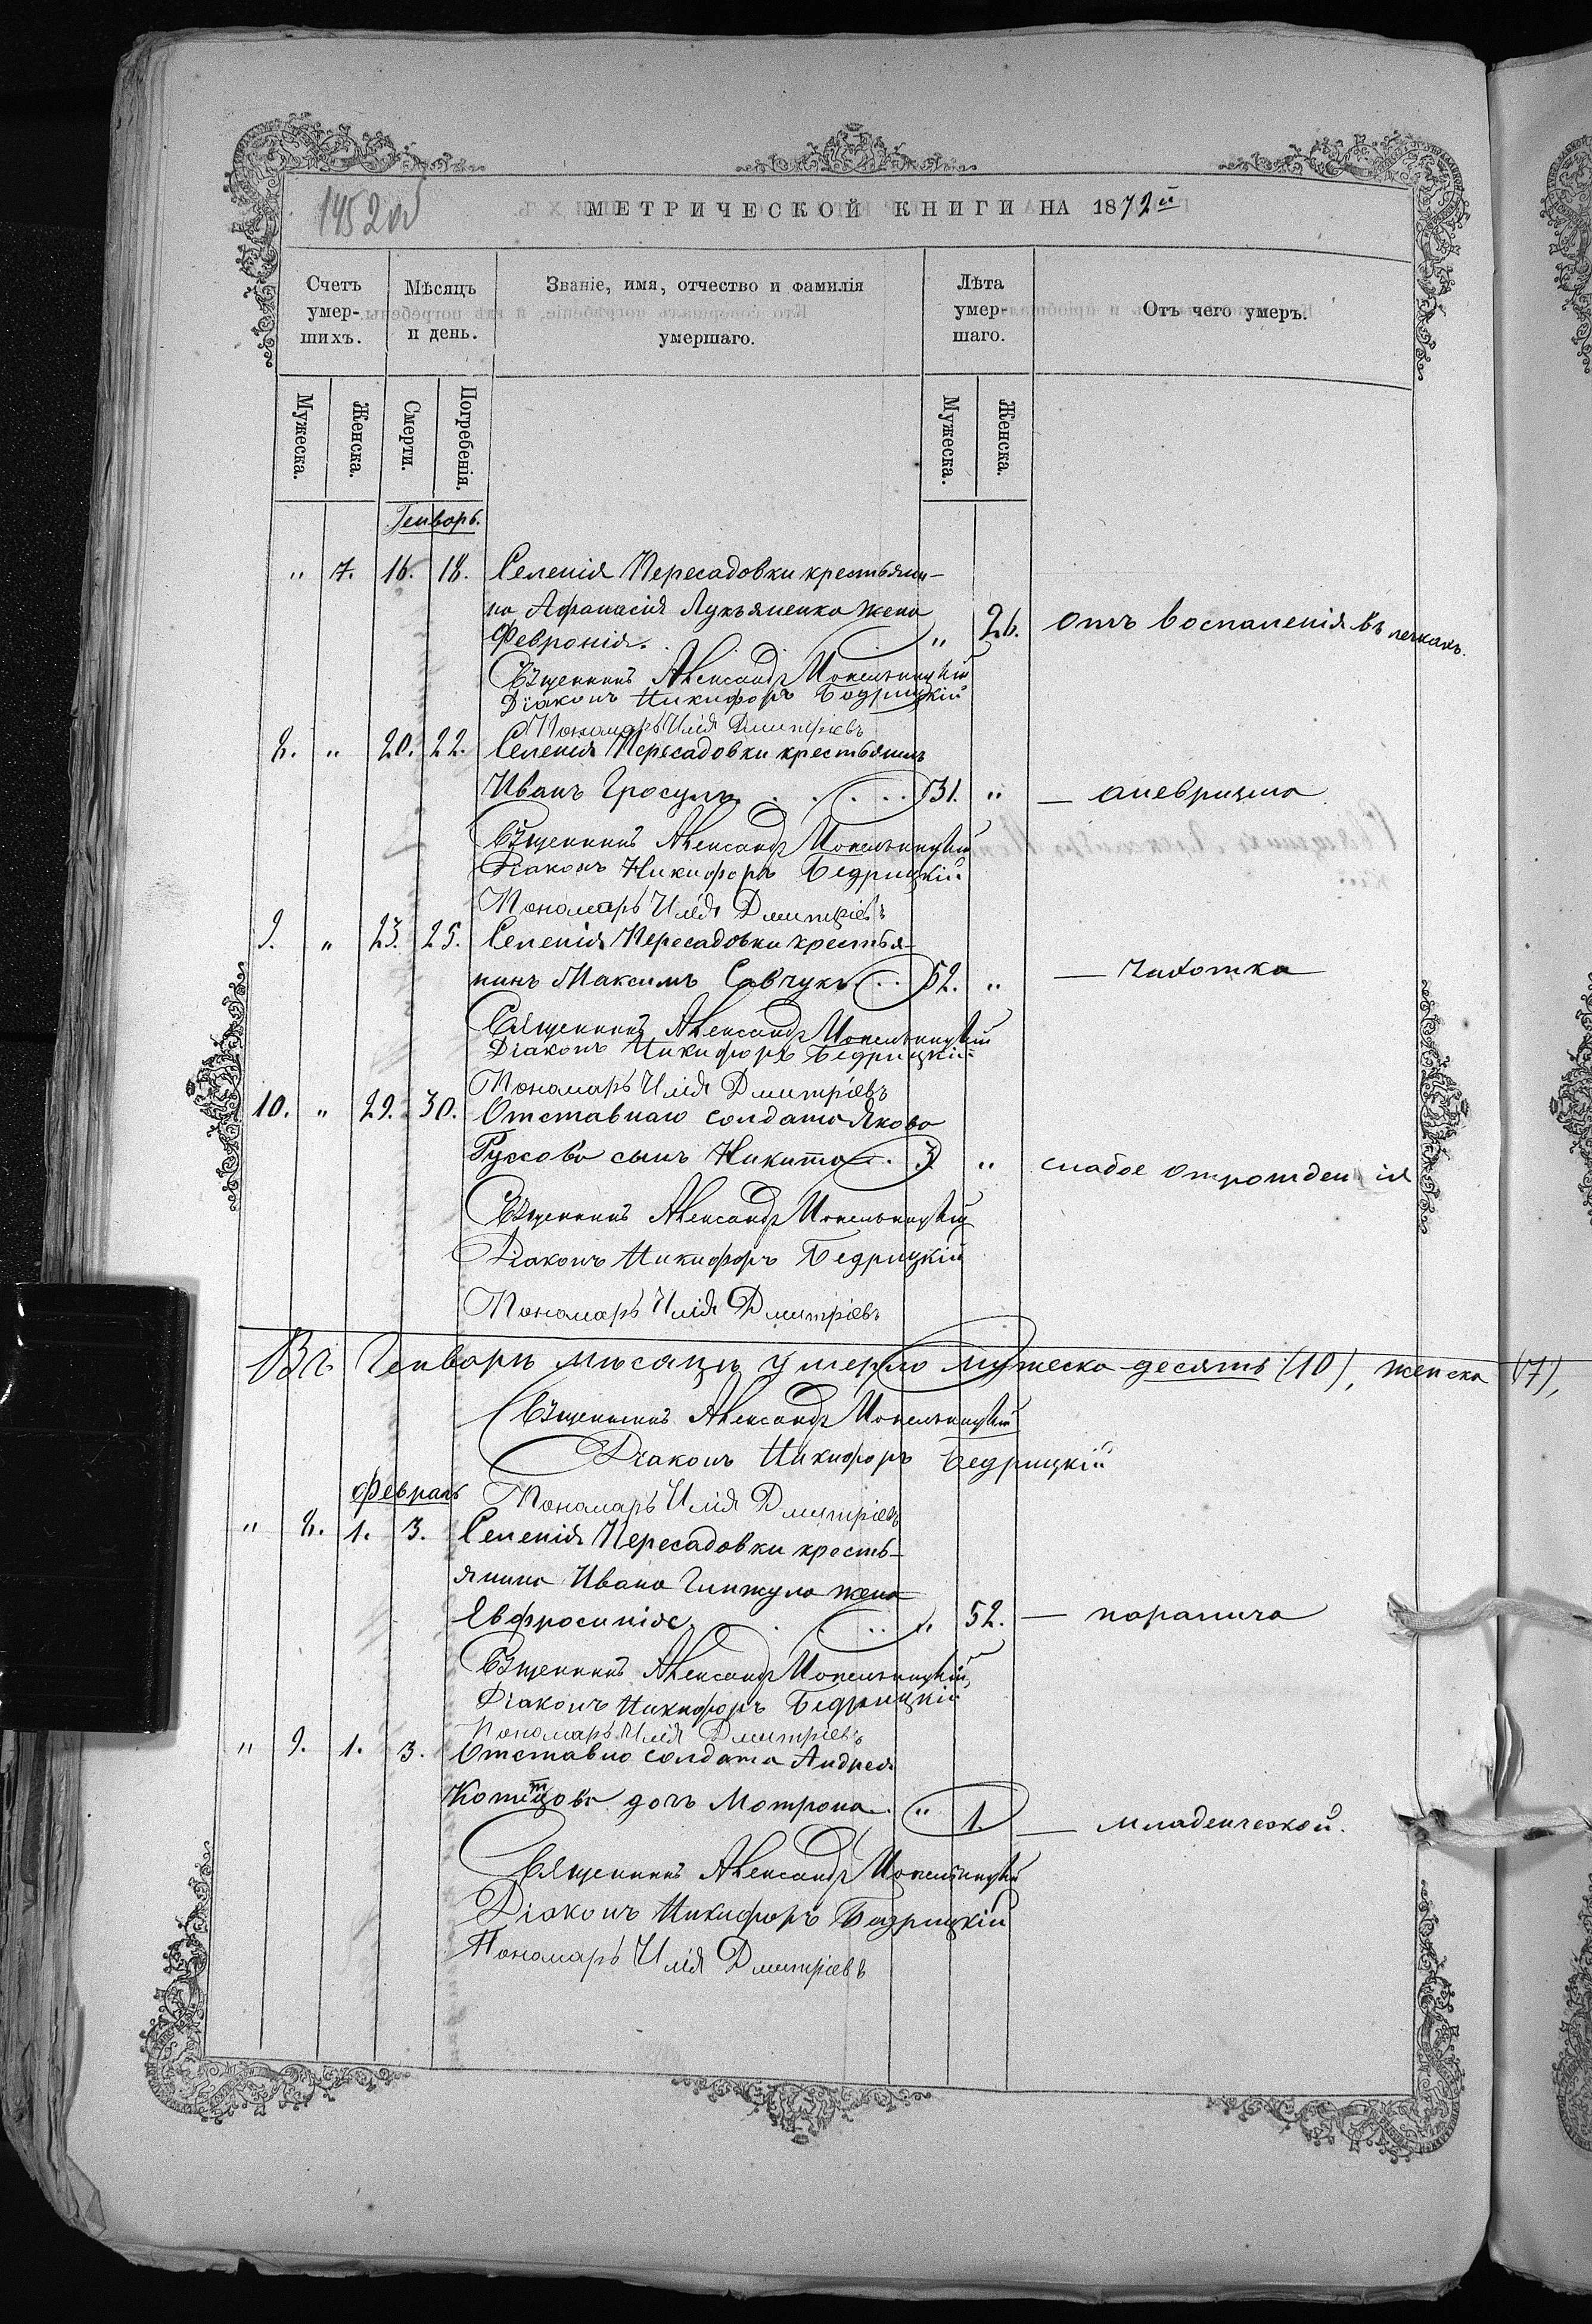 1452об
МЕТРИЧЕСКОЙ КНИГИ НА 1872й
Счетъ умер-шихъ.
Мѣсяцъ и день.
Званіе, имя, отчество и фамилія умершаго.
Лѣта умер-шаго.
Отъ чего умеръ.
Мужеска.
Женска.
Смерти.
Погребенія.
Мужеска.
Женска.
Генварь.
" 7. 16. 18. Селенія Пересадовки крестьяни-
на Афанасія Лукьяненка жена
Февронія. " 26. Отъ воспаленія въ легкахъ.
Священникъ Александръ
Діаконъ Никифоръ Бедрицкій
Пономарь Илія Дмитріевъ
8. " 20. 22. Селенія Пересадовки крестьянинъ
Иванъ Гросулъ. 31. " — аневризма
Священникъ Александръ
Діаконъ Никифоръ Бедрицкій
Пономарь Илія Дмитріевъ
9. " 23. 25. Селенія Пересадовки крестья-
нинъ Максимъ Савчукъ 52. " — чахотка
Священникъ Александръ
Діаконъ Никифоръ Бедрицкій
Пономарь Илія Дмитріевъ
10. " 29. 30. Отставнаго солдата Якова
Руссова сынъ Никита 3. " слабое отрождения
Священникъ Александръ
Діаконъ Никифоръ Бедрицкій
Пономарь Илія Дмитріевъ
Въ Генварѣ мѣсяцѣ умерло мужеска десять (10), женска (7),
Священникъ Александръ
Діаконъ Никифоръ Бедрицкій
Пономарь Илія Дмитріевъ
Февраль
" 8. 1. 3. Селенія Пересадовки кресть-
янина Ивана жена
Евфросинія " 52. — паралича
Священникъ Александръ
Діаконъ Никифоръ Бедрицкій
Пономарь Илія Дмитріевъ
" 9. 1. 3. Отставно солдата Андрея
дочь Мотрона. " 1. — младенческой.
Священникъ Александръ
Діаконъ Никифоръ Бедрицкій
Пономарь Илія Дмитріевъ